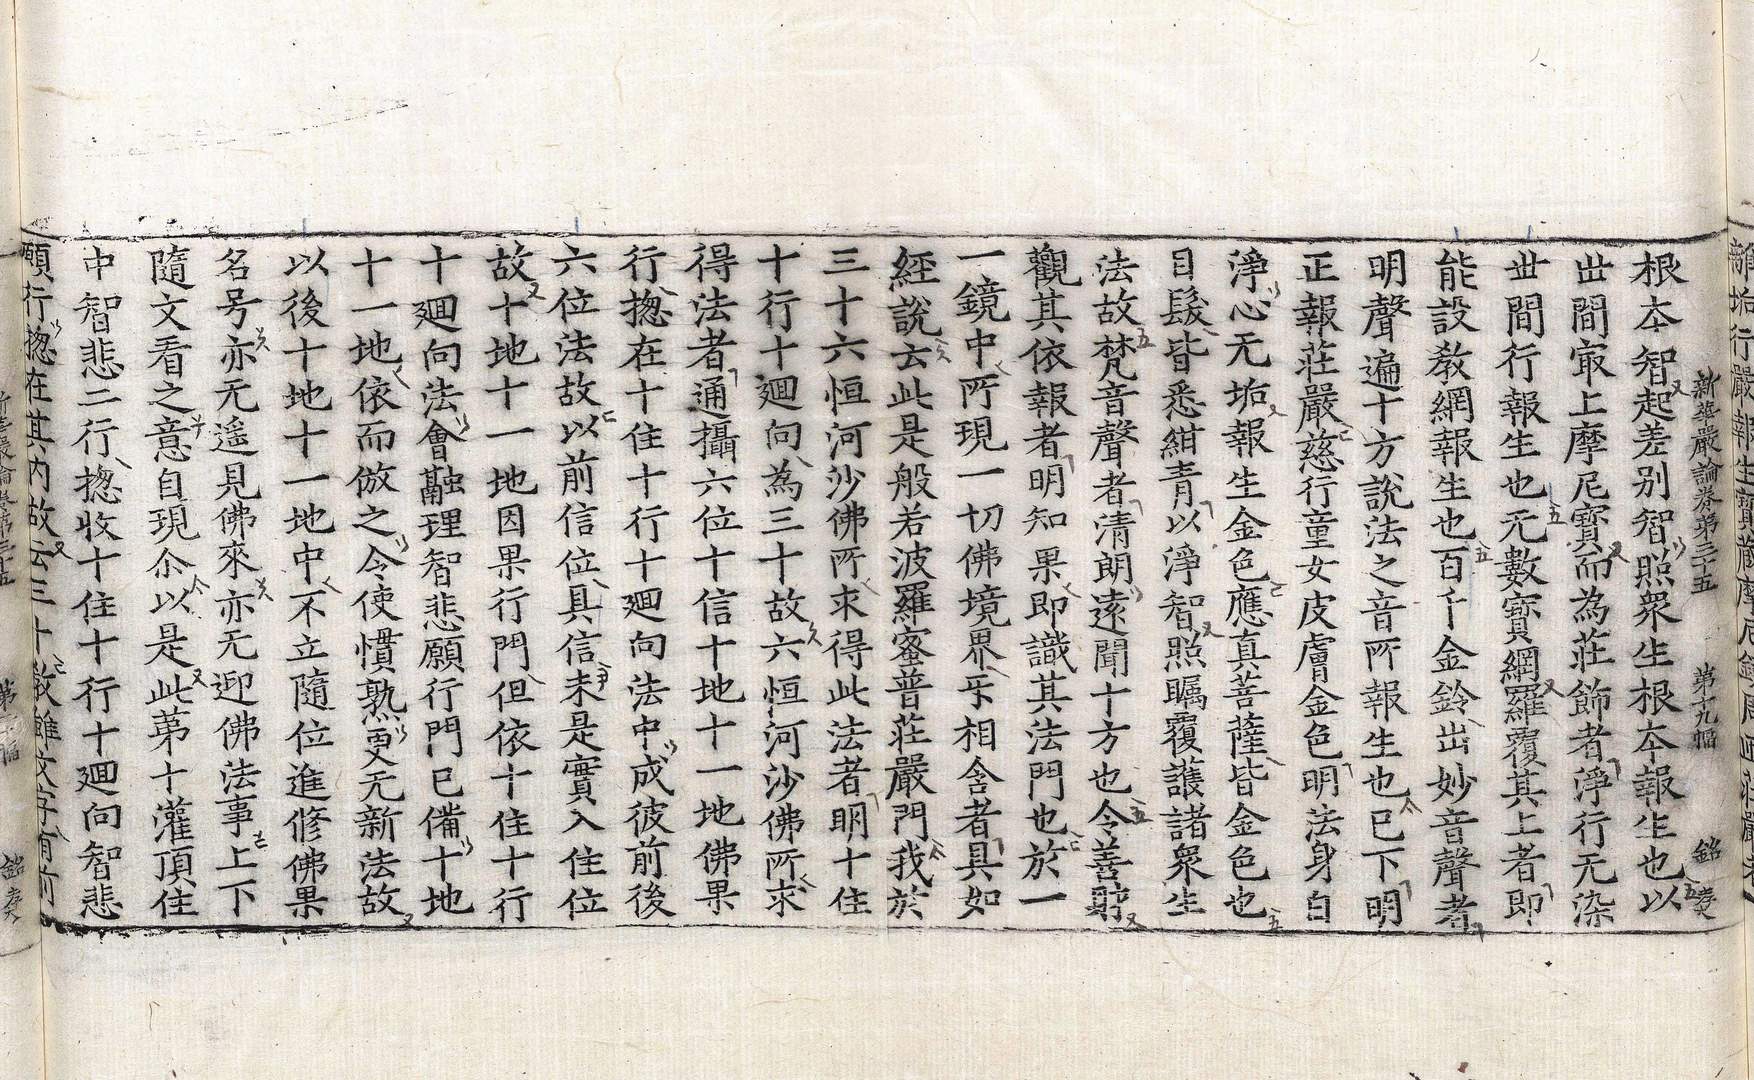 離垢行嚴報生寶藏摩尼鏡周匝莊嚴者
新華嚴論卷第三十五 第十九幅 銘孝
根本智起差别智照衆生根本報生也以
世間㝡上摩尼寶而為莊飾者淨行无染
世間行報生也无數寶網羅覆其上者即
能設教網報生也百千金鈴出妙音聲者
明聲遍十方說法之音所報生也已下明
正報莊嚴慈行童女皮膚金色明法身白
淨心无垢報生金色應真菩薩皆金色也
目髮皆悉紺青以淨智照矚覆護諸衆生
法故梵音聲者清朗遠聞十方也令善財
觀其依報者明知果即識其法門也於一
一鏡中所現一切佛境界㸦相含者具如
經說去此是般若波羅蜜普莊嚴門我於
三十六恒河沙佛所求得此法者明十住
十行十廻向為三十故六恒河沙佛所求
得法者通攝六位十信十地十一地佛果
行揔在十住十行十廻向法中成彼前後
六位法故以前信位具信未是實入住位
故十地十一地因果行門但依十住十行
十廻向法會融理智悲願行門已備十地
十一地依而倣之令使慣熟更无新法故
以後十地十一地中不立隨位進修佛果
名号亦无遥見佛來亦无迎佛法事上下
隨文看之意自現尒以是此苐十灌頂住
中智悲二行揔收十住十行十廻向智悲
願行揔在其内故云三十教雖文字有前